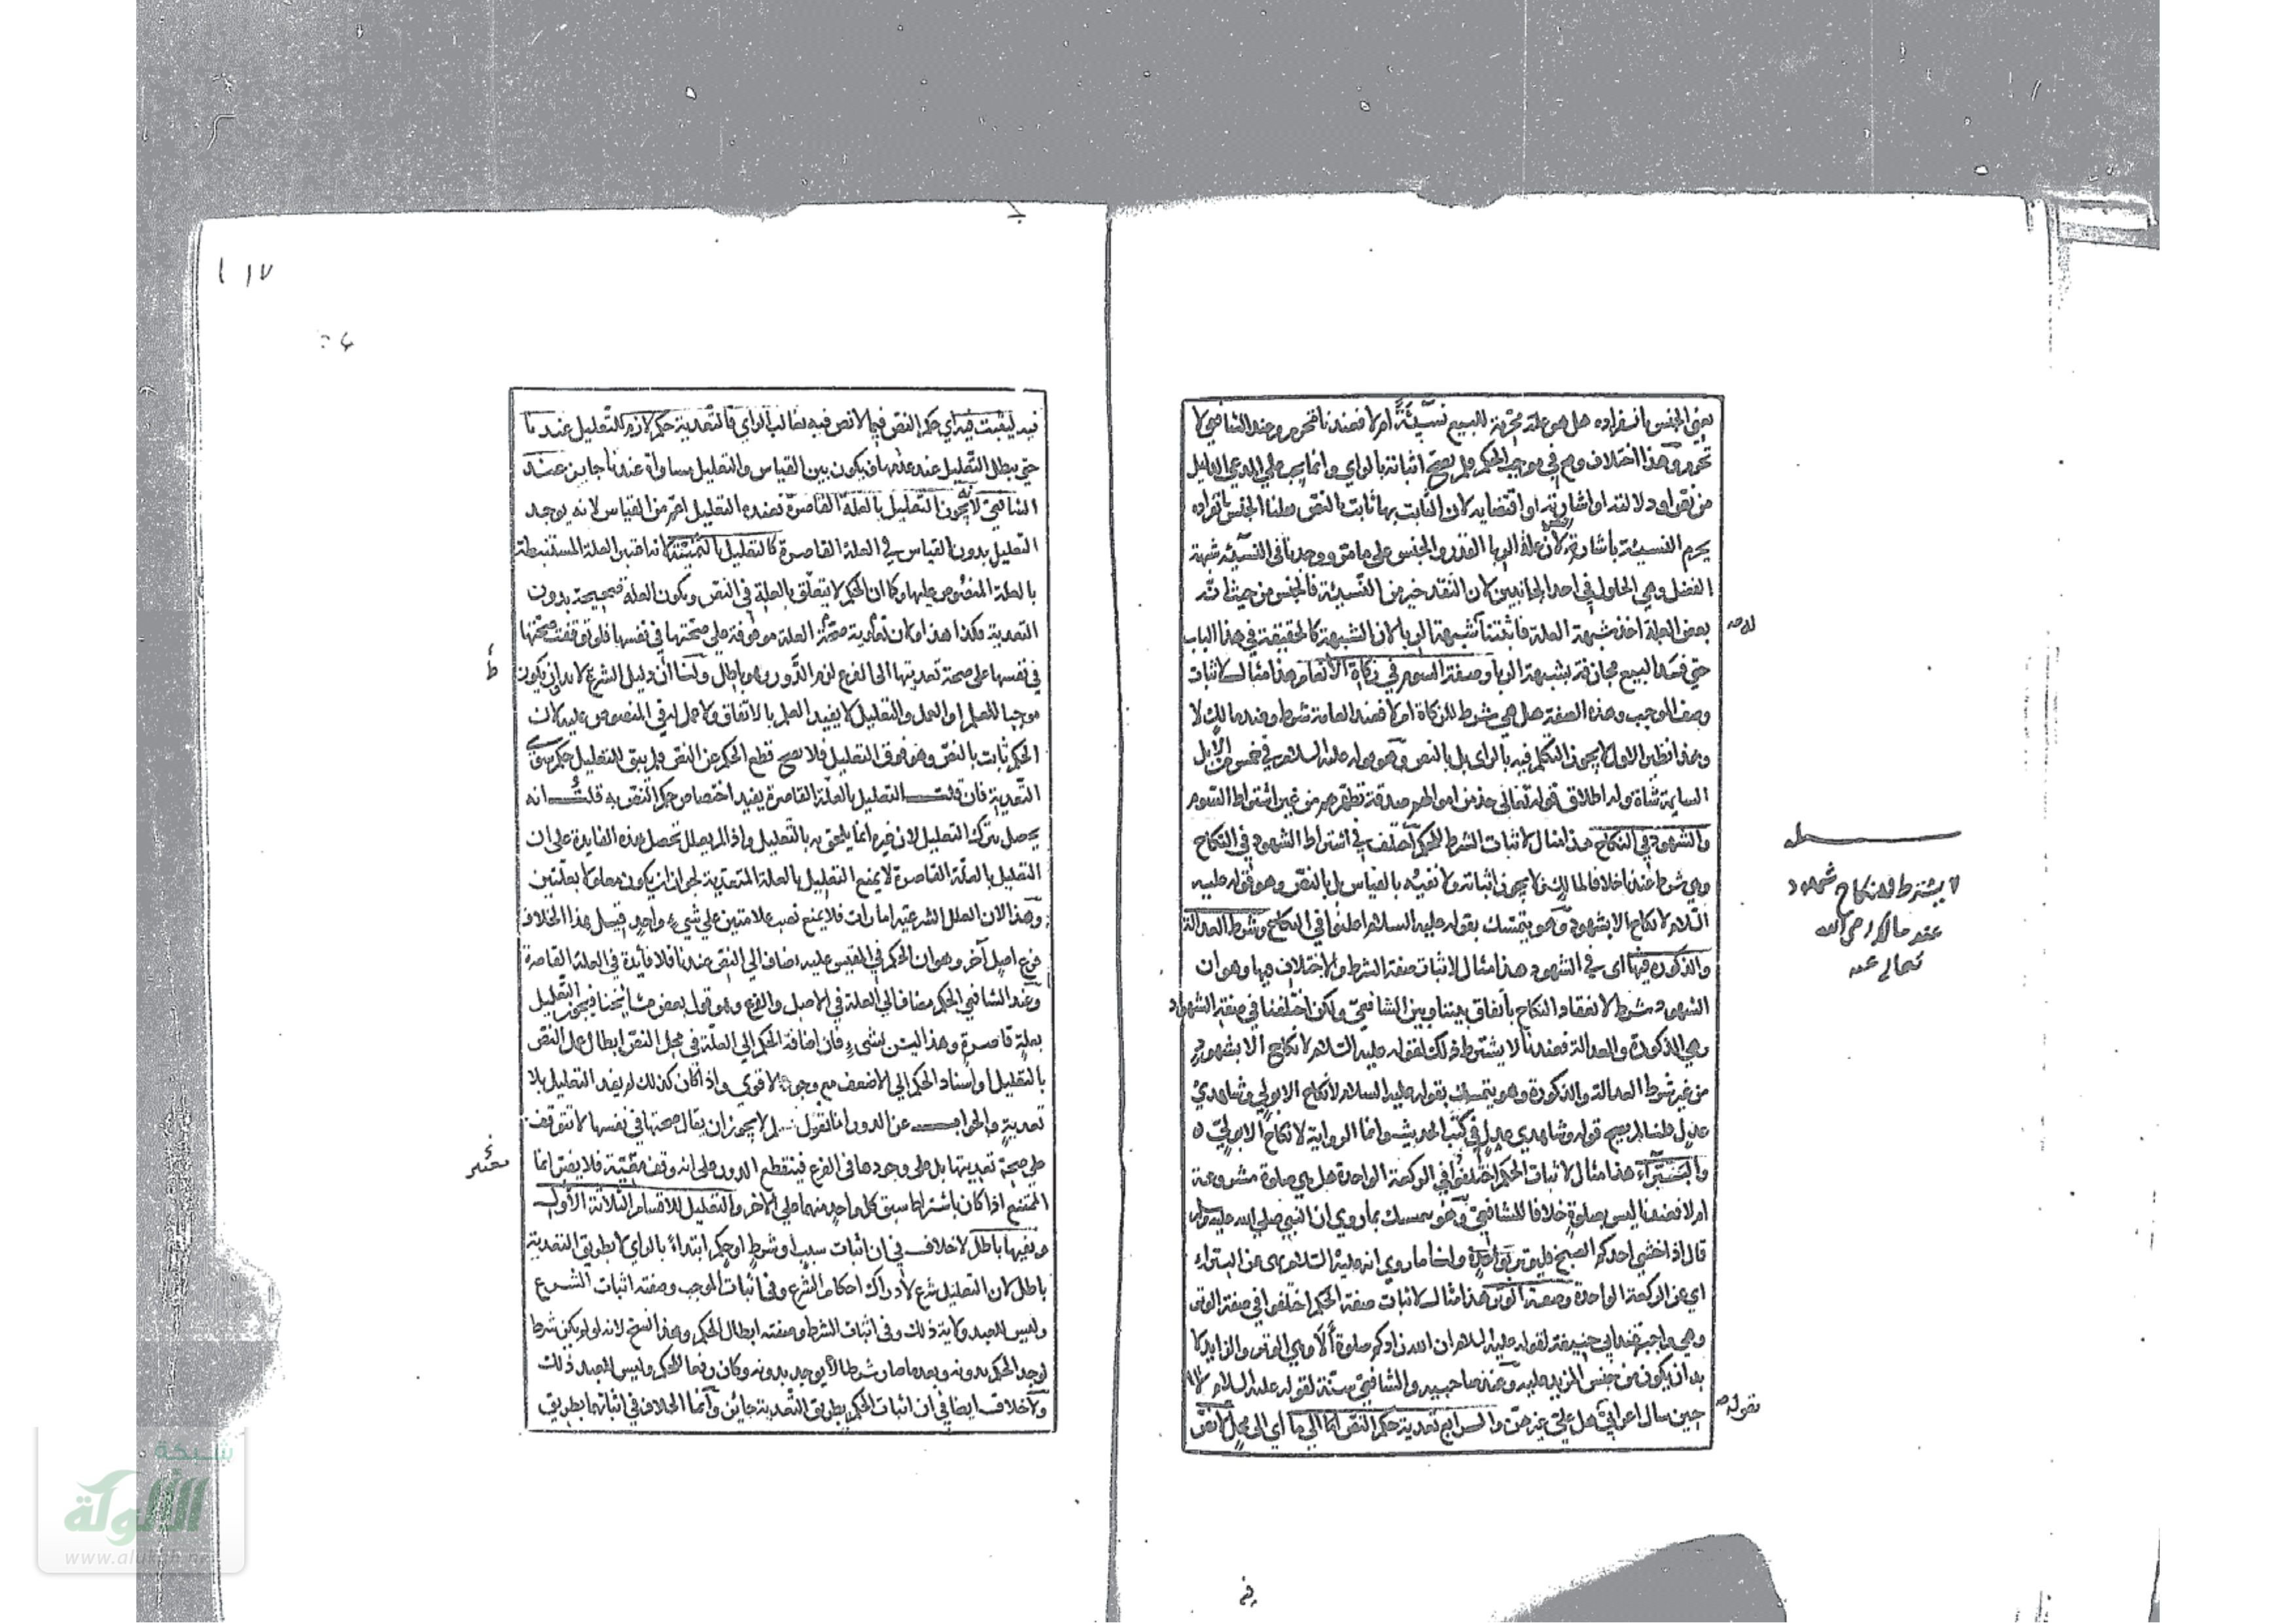 يعني الجنس بانفراده هل هو علة محرمة للبيع نسيئة ام لا فعندنا تحرم وعند الشافعي لا
تحرم وهذا اختلاف وقع في موجب الحكم فلم يصح اثباته بالراي وانما يجب على المدعي الدليل
من نص او دلالته او اشارته او اقتضايه لان الثابت بها ثابت بالنص قلنا الجنس بانفراده
يحرم النسيئة باشارة النص لان علة الربا القدر والجنس على ما مر ووجدنا في النسيئة شبهة
الفضل وهي الحلول في احد الجانبين لان النقد خير من النسيئة فالجنس من حيث انه
بعض العلة اخذ شبهة العلة فاثبتنا شبهة الربا لان الشبهة كالحقيقة في هذا الباب
حتى فسد البيع مجازفة بشبهة الربا وصفة السوم في زكاة الانعام هذا مثال لاثبات
وصف الموجب وهذه الصفة هل هي شرط للزكاة ام لا فعند العامة شرط وعند مالك لا
وهذا نظير الاول لا يجوز التكلم فيه بالراى بل بالنص وهو قوله عليه السلام في خمس من الابل
السايمة شاة وله اطلاق قوله تعالى خذ من اموالهم صدقة تطهرهم من غير اشتراط السوم
والشهود في النكاح هذا مثال لاثبات الشرط للحكم اختلف في اشتراط الشهود في النكاح
وهي شرط عندنا خلافا لمالك فلا يجوز اثباته ولا نفيه بالقياس بل بالنص وهو قوله عليه
السلام لا نكاح الا بشهود وهو يتمسك بقوله عليه السلام اعلنوا في النكاح وشرط العدالة
والذكورة فيها اى في الشهود هذا مثال لاثبات صفة الشرط والاختلاف فيها وهو ان
الشهود شرط لانعقاد النكاح باتفاق بيننا وبين الشافعي ولكن اختلفنا في صفة الشهود
وهي الذكورة والعدالة فعندنا لا يشترط ذلك لقوله عليه السلام لا نكاح الا بشهود
من غير شرط العدالة والذكورة وهو يتمسك بقوله عليه السلام لا نكاح الا بولي وشاهدي
عدل قلنا لم يصح قوله وشاهدي عدل في كتب الحديث وانما الرواية لا نكاح الا بولي
والبتيراء هذا مثال لاثبات الحكم اختلفوا في الركعة الواحدة هل هي صلوة مشروعة
ام لا فعندنا ليس بصلوة خلافا للشافعي وهو يتمسك بما روي ان النبي صلى الله عليه وسلم
قال اذا خشي احدكم الصبح فليوتر بواحدة ولنا ما روي انه عليه السلام نهى عن البتيراء
اي عن الركعة الواحدة وصفة الوتر هذا مثال لاثبات صفة الحكم اختلفوا في صفة الوتر
وهي واجبة عند ابي حنيفة لقوله عليه السلام ان الله زادكم صلوة الا وهي الوتر والزايد لا
بد ان يكون من جنس المزيد عليه وعند صاحبيه والشافعي سنة لقوله عليه السلام لا
حين سال اعرابي هل علي غيرهن والرابع تعدية حكم النص الى ما اي الى محل لا نص
لا يشترط في النكاح شهود
عند مالك رحمه الله
تعالى عنه
فيه ليثبت فيه اي حكم النص فيما لا نص فيه بغالب الراي فالتعدية حكم لازم للتعليل عندنا
حتى يبطل التعليل عند عدمها فيكون بين القياس والتعليل مساواة عندنا جايز عند
الشافعي لانه يجوز التعليل بالعلة القاصرة فعنده التعليل اعم من القياس لانه يوجد
التعليل بدون القياس في العلة القاصرة كالتعليل بالثمنية لانه اعتبر العلة المستنبطة
بالعلة المنصوص عليها وكما ان الحكم لا يتعلق بالعلة في النص ويكون العلة صحيحة بدون
التعدية فكذا هذا ولان تعدية صحة العلة موقوفة على صحتها في نفسها فلو توقفت صحتها
في نفسها على صحة تعديتها الى الفرع لزم الدور وهو باطل ولنا ان دليل الشرع لا بد ان يكون
موجبا للعلم او العمل والتعليل لا يفيد العلم بالاتفاق ولا عملا في المنصوص عليه لان
الحكم ثابت بالنص وهو فوق التعليل فلا يصح قطع الحكم عن النص فلم يبق للتعليل حكم سوى
التعدية فان قلت التعليل بالعلة القاصرة يفيد اختصاص حكم النص به قلت انه
يحصل بترك التعليل لان غيره انما يلحق به بالتعليل واذا لم يعلل تحصل هذه الفايدة على ان
التعليل بالعلة القاصرة لا يمنع التعليل بالعلة المتعدية لجواز ان يكون معلولا بعلتين
وهذا لان العلل الشرعية امارات فلا يمنع نصب علامتين على شيء واحد قيل هذا الخلاف
فرع اصل آخر وهو ان الحكم في المقيس عليه مضاف الى النص عندنا فلا فايدة في العلة القاصرة
وعند الشافعي الحكم مضاف الى العلة في الاصل والفرع وهو قول بعض مشايخنا فيجوز التعليل
بعلة قاصرة وهذا ليس بشيء فان اضافة الحكم الى العلة في محل النص ابطال عمل النص
بالتعليل او اسناد الحكم الى الاضعف مع وجود الاقوى واذا كان كذلك لم يفد التعليل بلا
تعدية والجواب عن الدور انا نقول لم لا يجوز ان يقال صحتها في نفسها لا تتوقف
على صحة تعديتها بل على وجودها في الفرع فينقطع الدور على انه وقف معية فلا يضر انما
الممتنع اذا كان باشتراط سبق كل واحد منهما على الآخر والتعليل للاقسام الثلاثة الاول
ونفيها باطل لا خلاف في ان اثبات سبب او شرط او حكم ابتداء بالراي لا بطريق التعدية
باطل لان التعليل شرع لادراك احكام الشرع وفي اثبات الموجب وصفته اثبات الشرع
وليس للعبد ولاية ذلك وفي اثبات الشرط وصفته ابطال الحكم وهذا نسخ لانه لو لم يكن شرطا
لوجد الحكم بدونه وبعد ما صار شرطا لا يوجد بدونه وكان رفعا للحكم وليس للعبد ذلك
ولا خلاف ايضا في ان اثبات الحكم بطريق التعدية جائز وانما الخلاف في اثباتها بطريق
شبكة
الألوكة
www.alukah.net